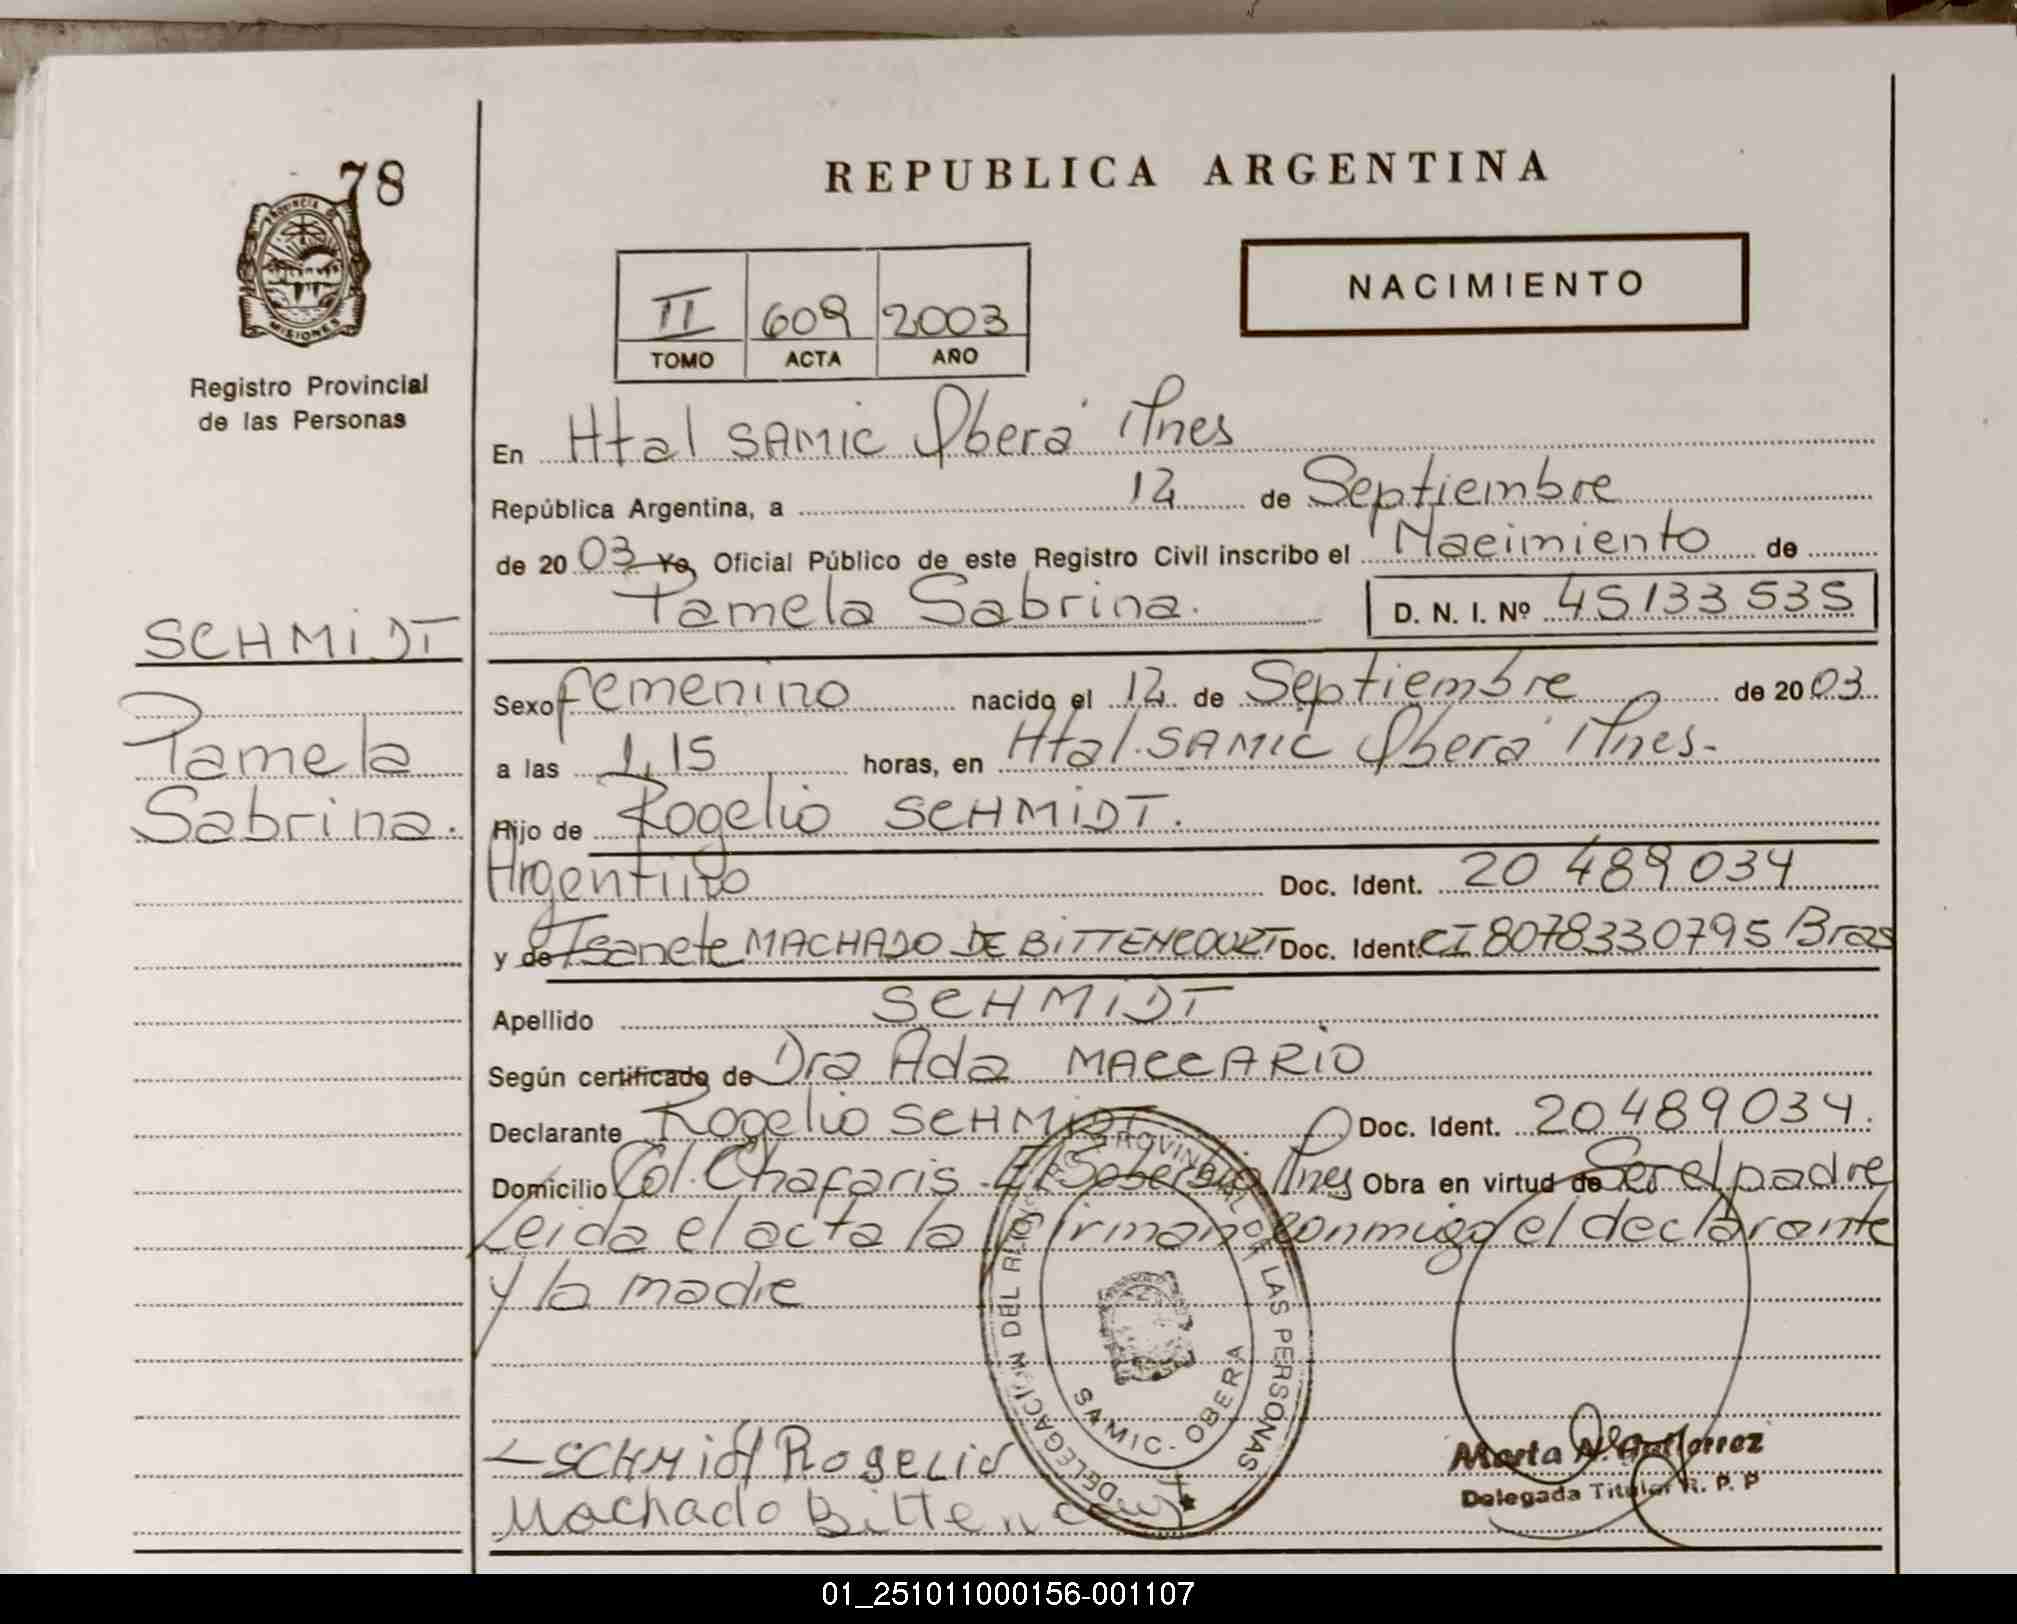 78
PROVINCIA DE
MISIONES
Registro Provincial
de las Personas
REPUBLICA ARGENTINA
II 609 2003
TOMO ACTA AÑO
NACIMIENTO
En Htal SAMIC Oberá Mnes
República Argentina, a 12 de Septiembre
de 20 03 Yo, Oficial Público de este Registro Civil inscribo el Nacimiento de
Pamela Sabrina. D. N. I. Nº 45133535
SCHMIDT
Pamela
Sabrina.
Sexo femenino nacido el 12 de Septiembre de 20 03
a las 1,15 horas, en Htal. SAMIC Oberá Mnes.
Hijo de Rogelio SCHMIDT.
Argentino Doc. Ident. 20 489 034
y de Isanete MACHADO DE BITTENCOURT Doc. Ident. CI 8078330795 Bras
Apellido SCHMIDT
Según certificado de Dra Ada MACCARIO
Declarante Rogelio SCHMIDT Doc. Ident. 20489034.
Domicilio Col. Chafaris El Soberbio Mnes Obra en virtud de Ser el padre
Leida el acta la firman conmigo el declarante
y la madre
DELEGACION DEL REGISTRO PROVINCIAL DE LAS PERSONAS
SAMIC - OBERA
SCHMIDT ROGELIO
Machado Bittencourt
Marta N. Gutierrez
Delegada Titular R. P. P
01_251011000156-001107